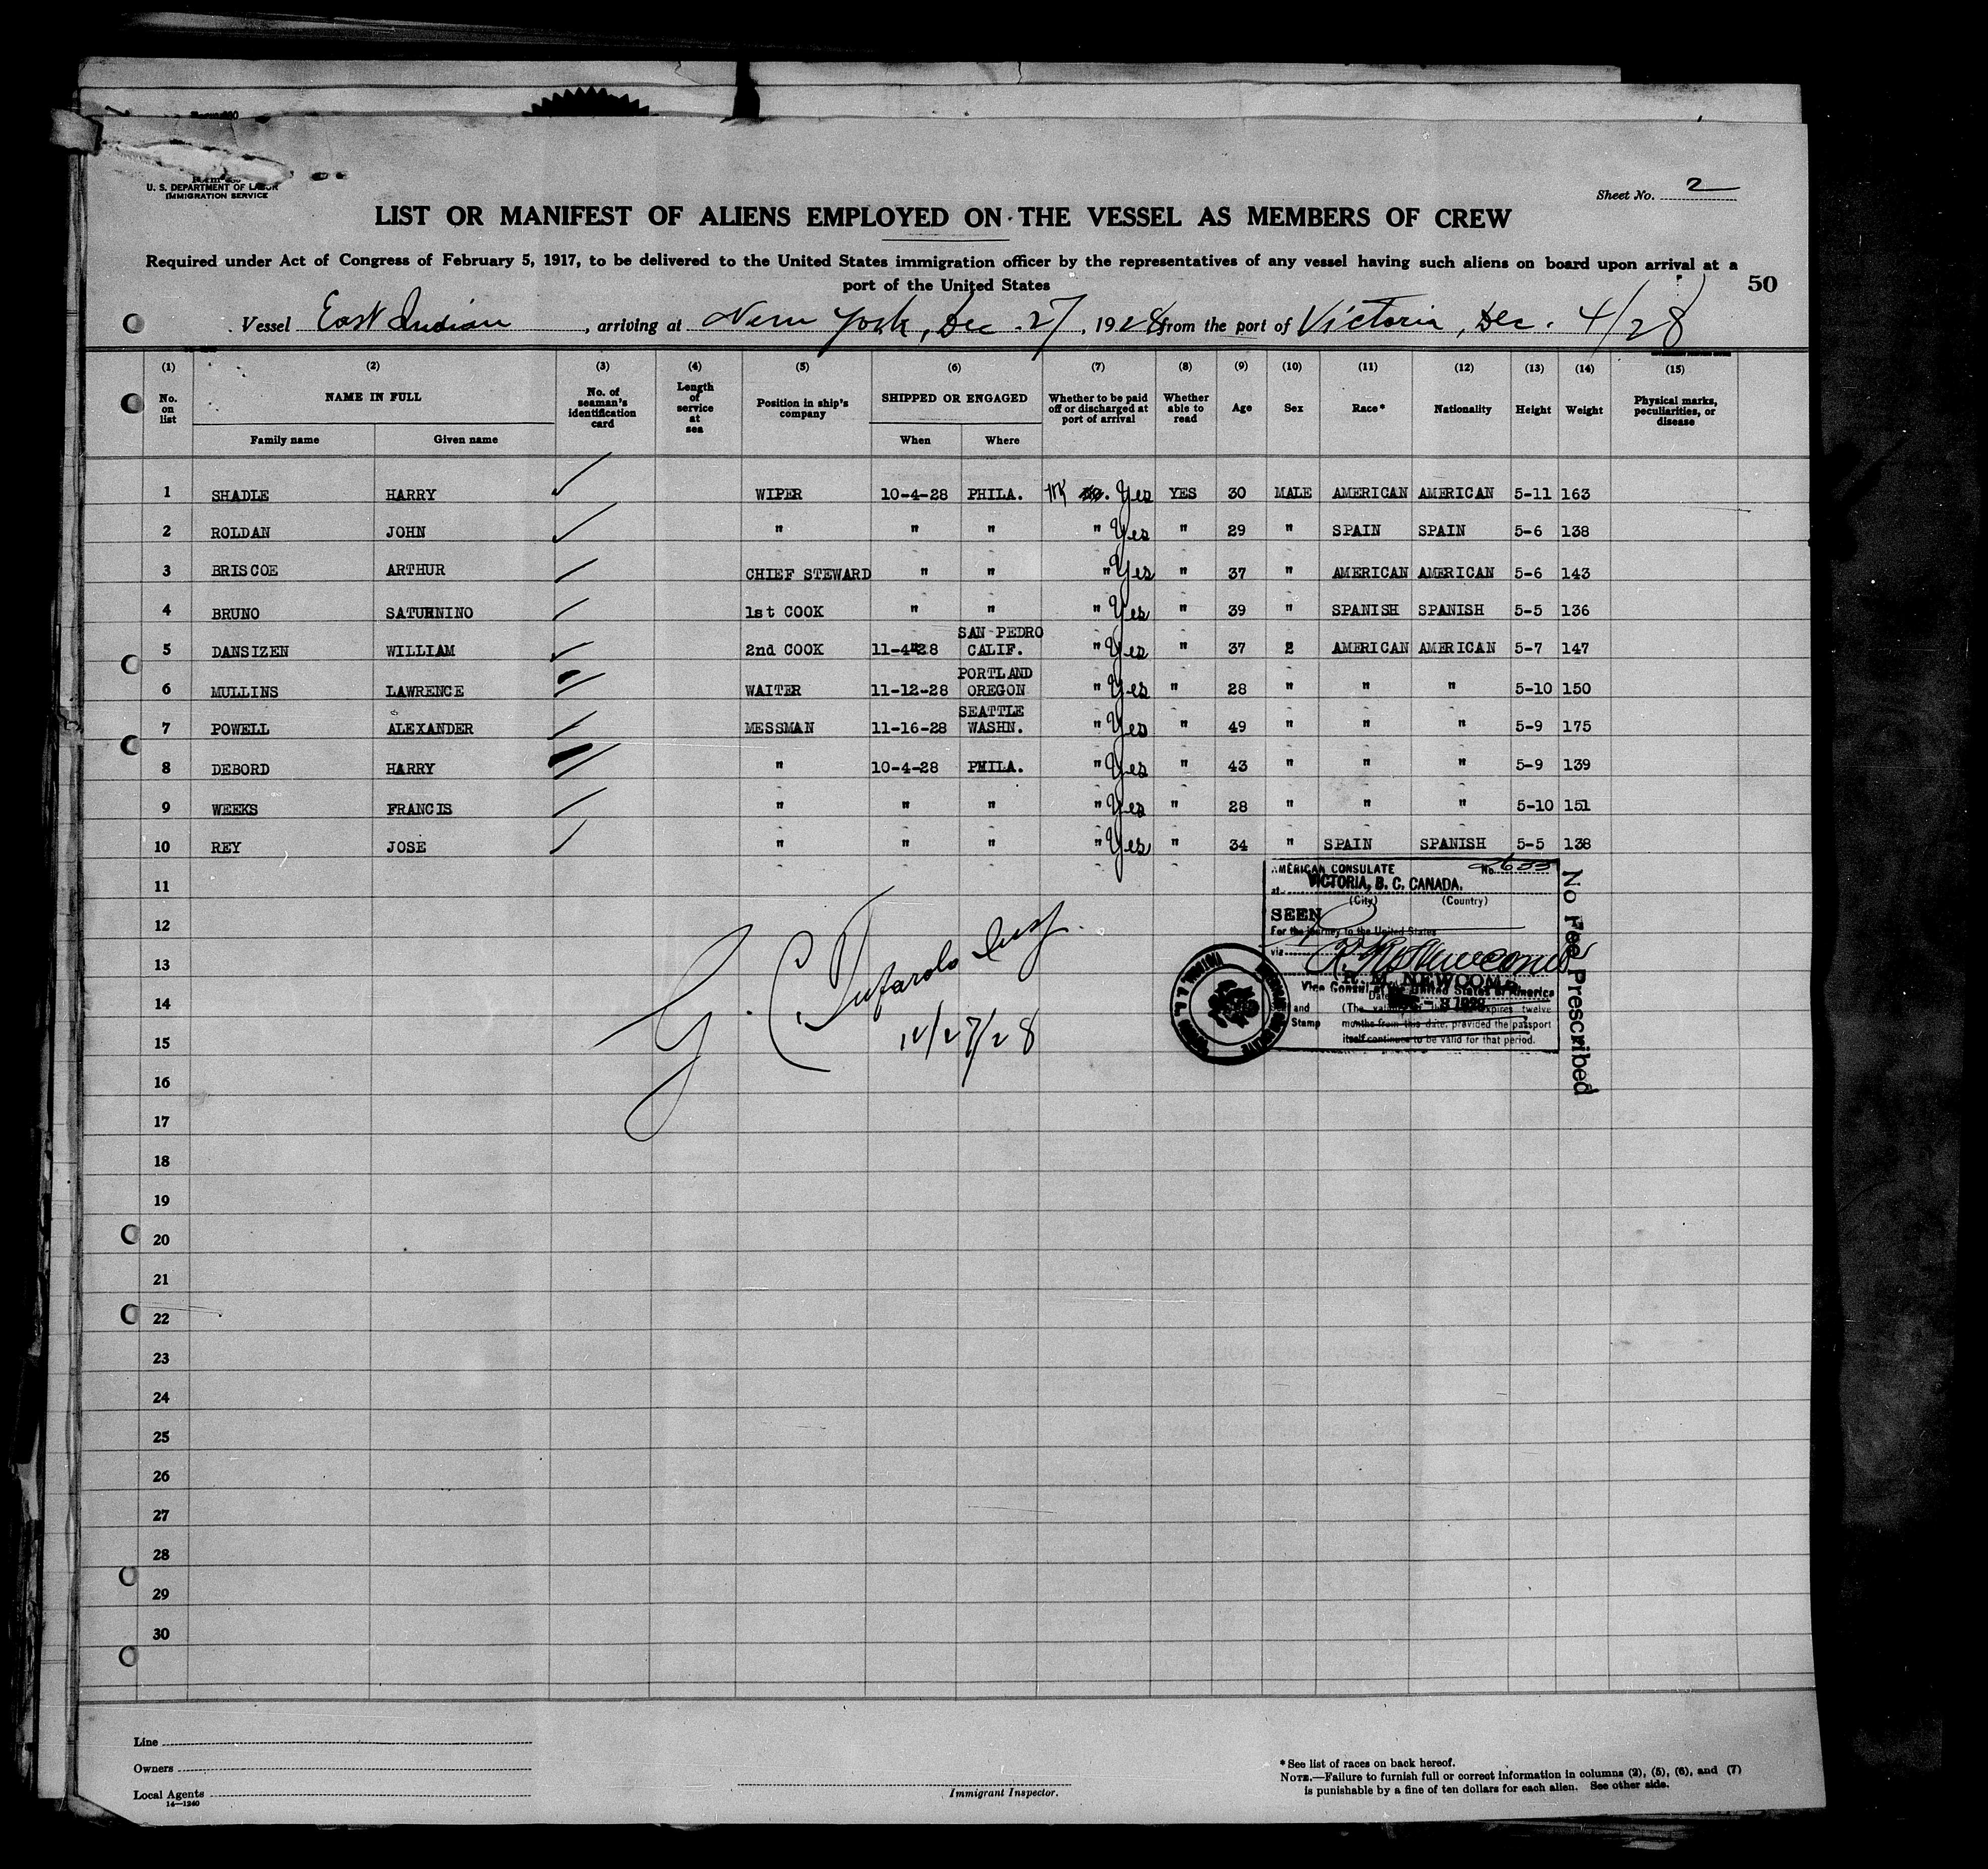 U. S. DEPARTMENT OF LABOR
IMMIGRATION SERVICE
Sheet No. 2
LIST OR MANIFEST OF ALIENS EMPLOYED ON THE VESSEL AS MEMBERS OF CREW
Required under Act of Congress of February 5, 1917, to be delivered to the United States immigration officer by the representatives of any vessel having such aliens on board upon arrival at a
port of the United States
50
Vessel East Indian, arriving at New York, Dec. 27, 1928 from the port of Victoria, Dec. 4/28
(1) (2) (3) (4) (5) (6) (7) (8) (9) (10) (11) (12) (13) (14) (15)
No. on list NAME IN FULL No. of seaman's identification card Length of service at sea Position in ship's company SHIPPED OR ENGAGED Whether to be paid off or discharged at port of arrival Whether able to read Age Sex Race* Nationality Height Weight Physical marks, peculiarities, or disease
Family name Given name When Where
1 SHADLE HARRY WIPER 10-4-28 PHILA. Yes YES 30 MALE AMERICAN AMERICAN 5-11 163
2 ROLDAN JOHN " " " " Yes " 29 " SPAIN SPAIN 5-6 138
3 BRISCOE ARTHUR CHIEF STEWARD " " " Yes " 37 " AMERICAN AMERICAN 5-6 143
4 BRUNO SATURNINO 1st COOK " " " Yes " 39 " SPANISH SPANISH 5-5 136
5 DANSIZEN WILLIAM 2nd COOK 11-4-28 SAN PEDRO CALIF. " Yes " 37 " AMERICAN AMERICAN 5-7 147
6 MULLINS LAWRENCE WAITER 11-12-28 PORTLAND OREGON " Yes " 28 " " " 5-10 150
7 POWELL ALEXANDER MESSMAN 11-16-28 SEATTLE WASHN. " Yes " 49 " " " 5-9 175
8 DEBORD HARRY " 10-4-28 PHILA. " Yes " 43 " " " 5-9 139
9 WEEKS FRANCIS " " " " Yes " 28 " " " 5-10 151
10 REY JOSE " " " " Yes " 34 " SPAIN SPANISH 5-5 138
11
12
13
14
15
16
17
18
19
20
21
22
23
24
25
26
27
28
29
30
AMERICAN CONSULATE No. 2633
at VICTORIA, B. C. CANADA.
(City) (Country)
SEEN
For the journey to the United States
via
R. M. NEWCOMB
Vice Consul of the United States of America
Date
and (The validity of this expires twelve
Stamp months from this date, provided the passport
itself continues to be valid for that period.
No Fee Prescribed
12/27/28
Line
Owners
Local Agents
14—1240
Immigrant Inspector.
* See list of races on back hereof.
NOTE.—Failure to furnish full or correct information in columns (2), (5), (6), and (7)
is punishable by a fine of ten dollars for each alien. See other side.